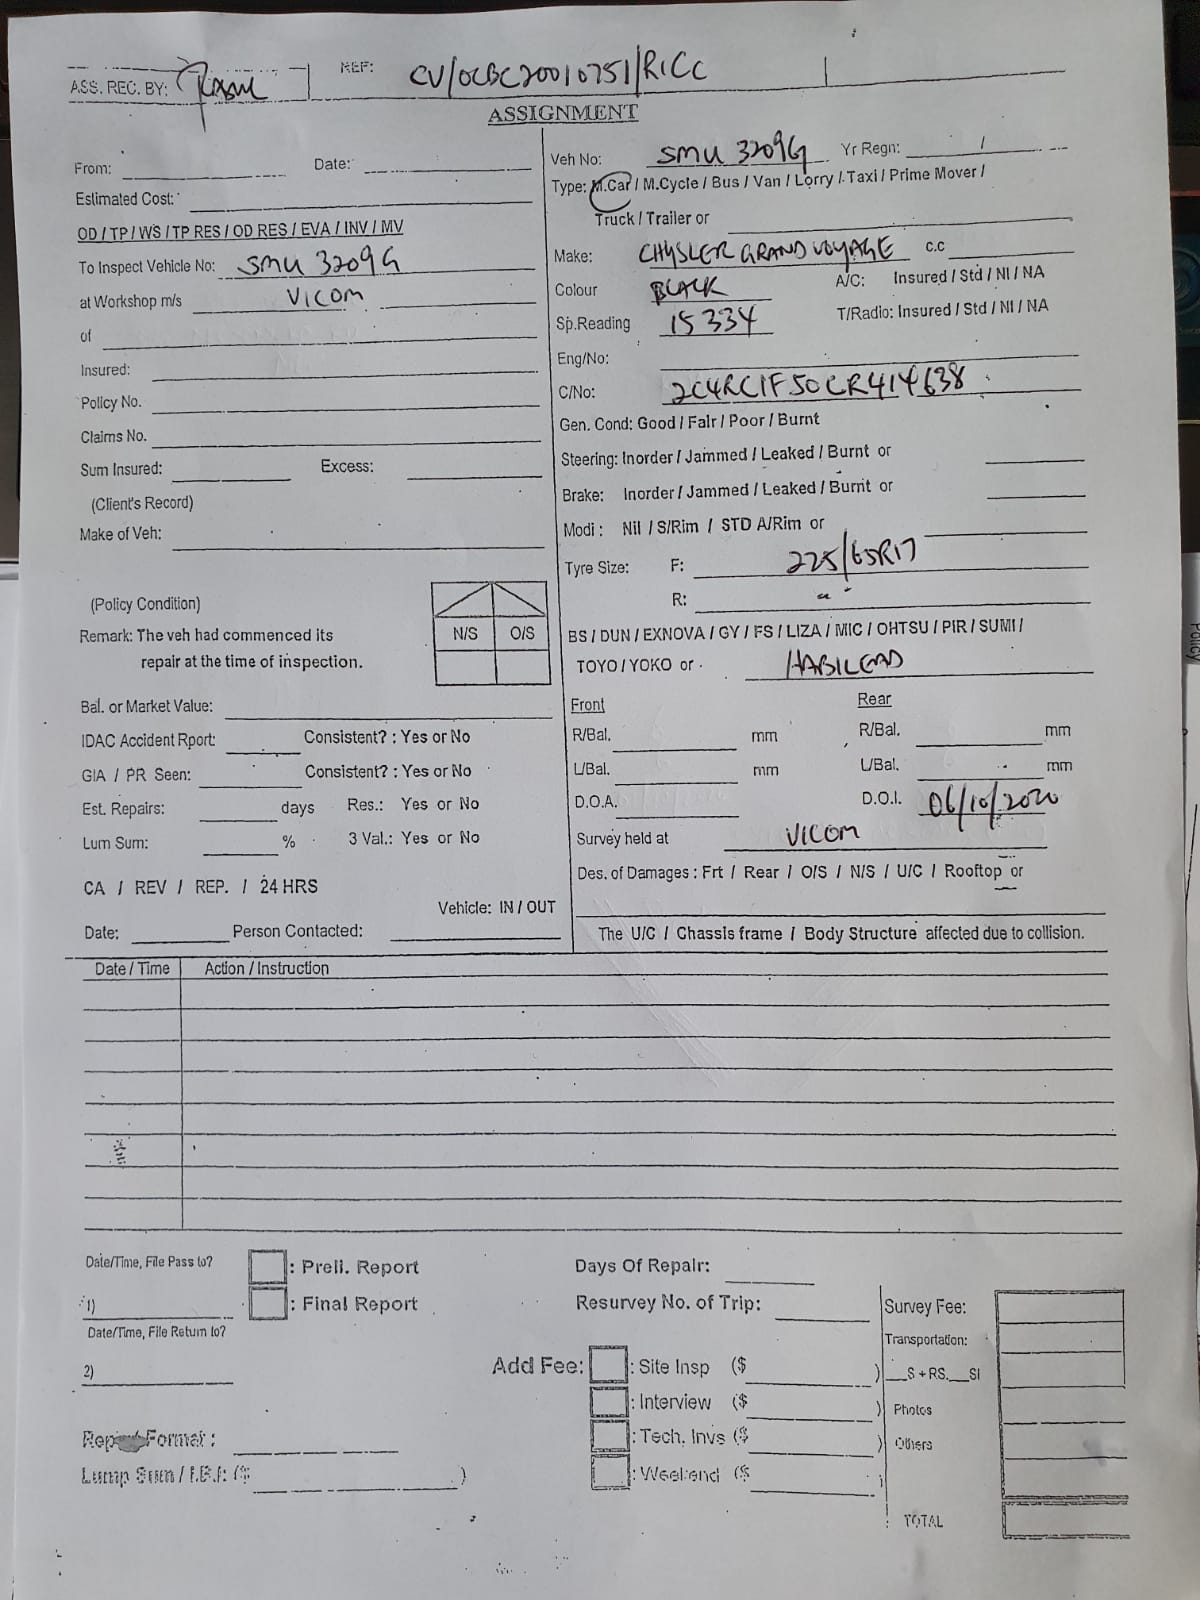 REF: CV/OCBC20010751/RICC
ASS. REC. BY:
ASSIGNMENT
From: Date:
Estimated Cost:
OD / TP / WS / TP RES / OD RES / EVA / INV / MV
To Inspect Vehicle No: SMU 3209G
at Workshop m/s VICOM
of
Insured:
Policy No.
Claims No.
Sum Insured: Excess:
(Client's Record)
Make of Veh:
(Policy Condition)
Remark: The veh had commenced its
repair at the time of inspection.
N/S O/S
Bal. or Market Value:
IDAC Accident Rport: Consistent? : Yes or No
GIA / PR Seen: Consistent? : Yes or No
Est. Repairs: days Res.: Yes or No
Lum Sum: % 3 Val.: Yes or No
CA / REV / REP. / 24 HRS
Vehicle: IN / OUT
Date: Person Contacted:
Veh No: SMU 3209G Yr Regn: /
Type: M.Car / M.Cycle / Bus / Van / Lorry / Taxi / Prime Mover /
Truck / Trailer or
Make: CHYSLER GRAND VOYAGE c.c
Colour BLACK A/C: Insured / Std / NI / NA
Sp.Reading 15334 T/Radio: Insured / Std / NI / NA
Eng/No:
C/No: 2C4RC1F50CR414638
Gen. Cond: Good / Fair / Poor / Burnt
Steering: Inorder / Jammed / Leaked / Burnt or
Brake: Inorder / Jammed / Leaked / Burnt or
Modi : Nil / S/Rim / STD A/Rim or
Tyre Size: F: 225/65R17
R: "
BS / DUN / EXNOVA / GY / FS / LIZA / MIC / OHTSU / PIR / SUMI /
TOYO / YOKO or HABILEAD
Front Rear
R/Bal. mm R/Bal. mm
L/Bal. mm L/Bal. mm
D.O.A. D.O.I. 06/10/2020
Survey held at VICOM
Des. of Damages : Frt / Rear / O/S / N/S / U/C / Rooftop or
The U/C / Chassis frame / Body Structure affected due to collision.
Date / Time Action / Instruction
Date/Time, File Pass to?
1)
Date/Time, File Return to?
2)
: Preli. Report
: Final Report
Report Format :
Lump Sum / I.B.I: ($ )
Days Of Repair:
Resurvey No. of Trip:
Add Fee: : Site Insp ($ )
: Interview ($ )
: Tech. Invs ($ )
: Weekend ($ )
Survey Fee:
Transportation:
__S + RS.__SI
Photos
Others
TOTAL
Policy